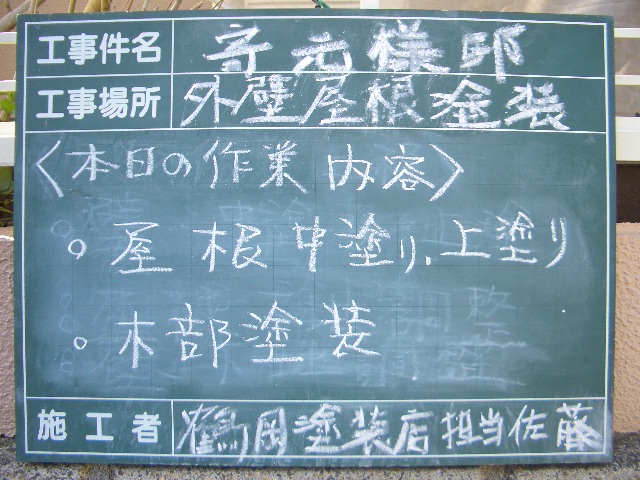 工事件名 守元様邸
工事場所 外壁屋根塗装
〈本日の作業内容〉
○ 屋根中塗り、上塗り
○ 木部塗装
施工者 鶴岡塗装店担当佐藤